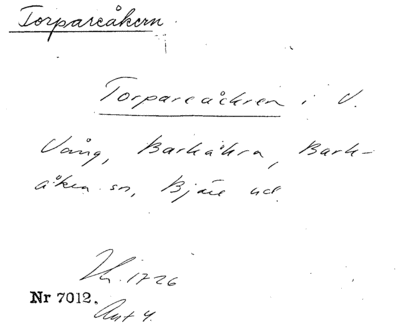 Torpareåkern.
Torpareåckren i V.
Vång, Barkåkra, Bark-
åkra sn, Bjäre hd.
1726
Nr 7012.
Ant 4.